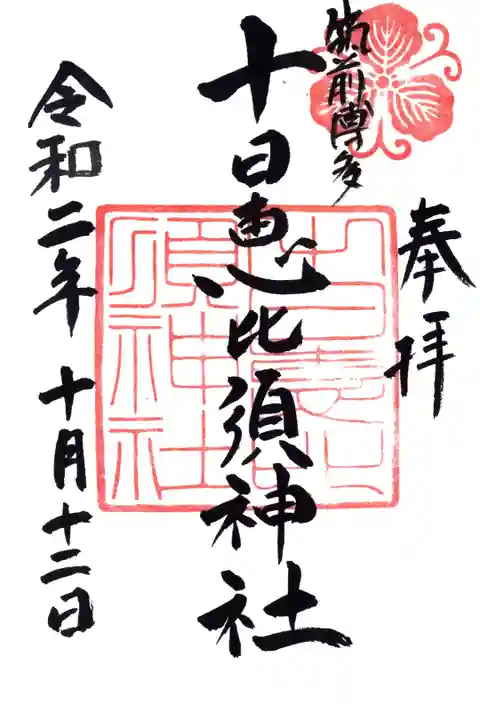 筑前博多
奉拝
十日恵比須神社
十日恵比須神社
令和二年十月十二日